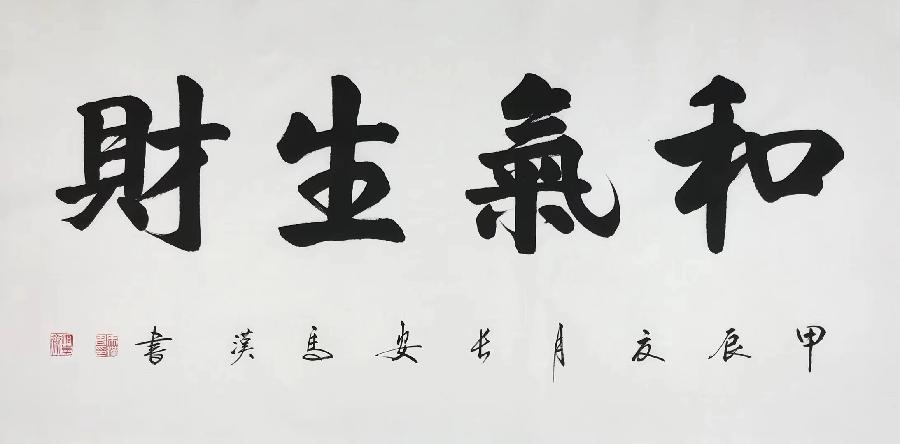 和氣生財
甲辰夏月長安馬漢書